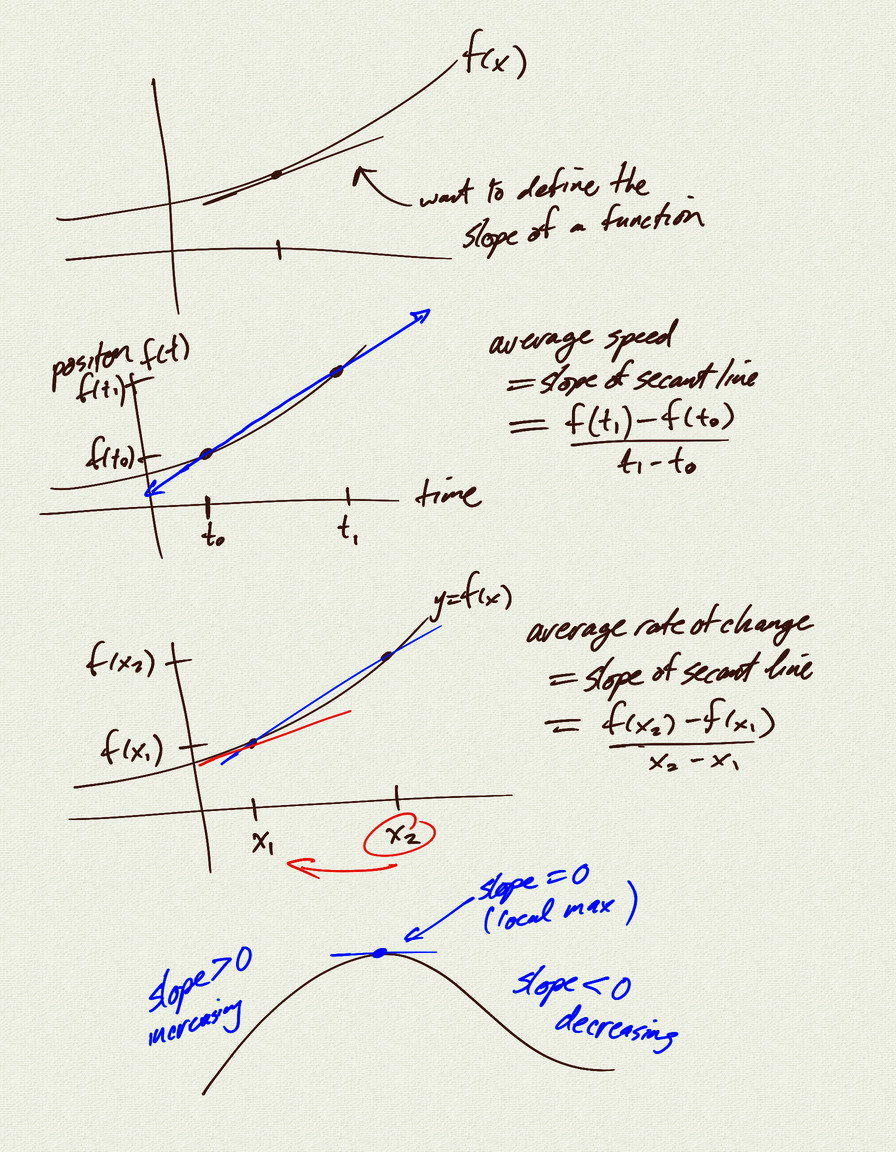 f(x)
want to define the
slope of a function
positon f(t)
f(t₁)
f(t₀)
t₀
t₁
time
average speed
= slope of secant line
= f(t₁) - f(t₀)
t₁ - t₀
y=f(x)
f(x₂)
f(x₁)
x₁
x₂
average rate of change
= slope of secant line
= f(x₂) - f(x₁)
x₂ - x₁
slope = 0
(local max)
slope > 0
increasing
slope < 0
decreasing